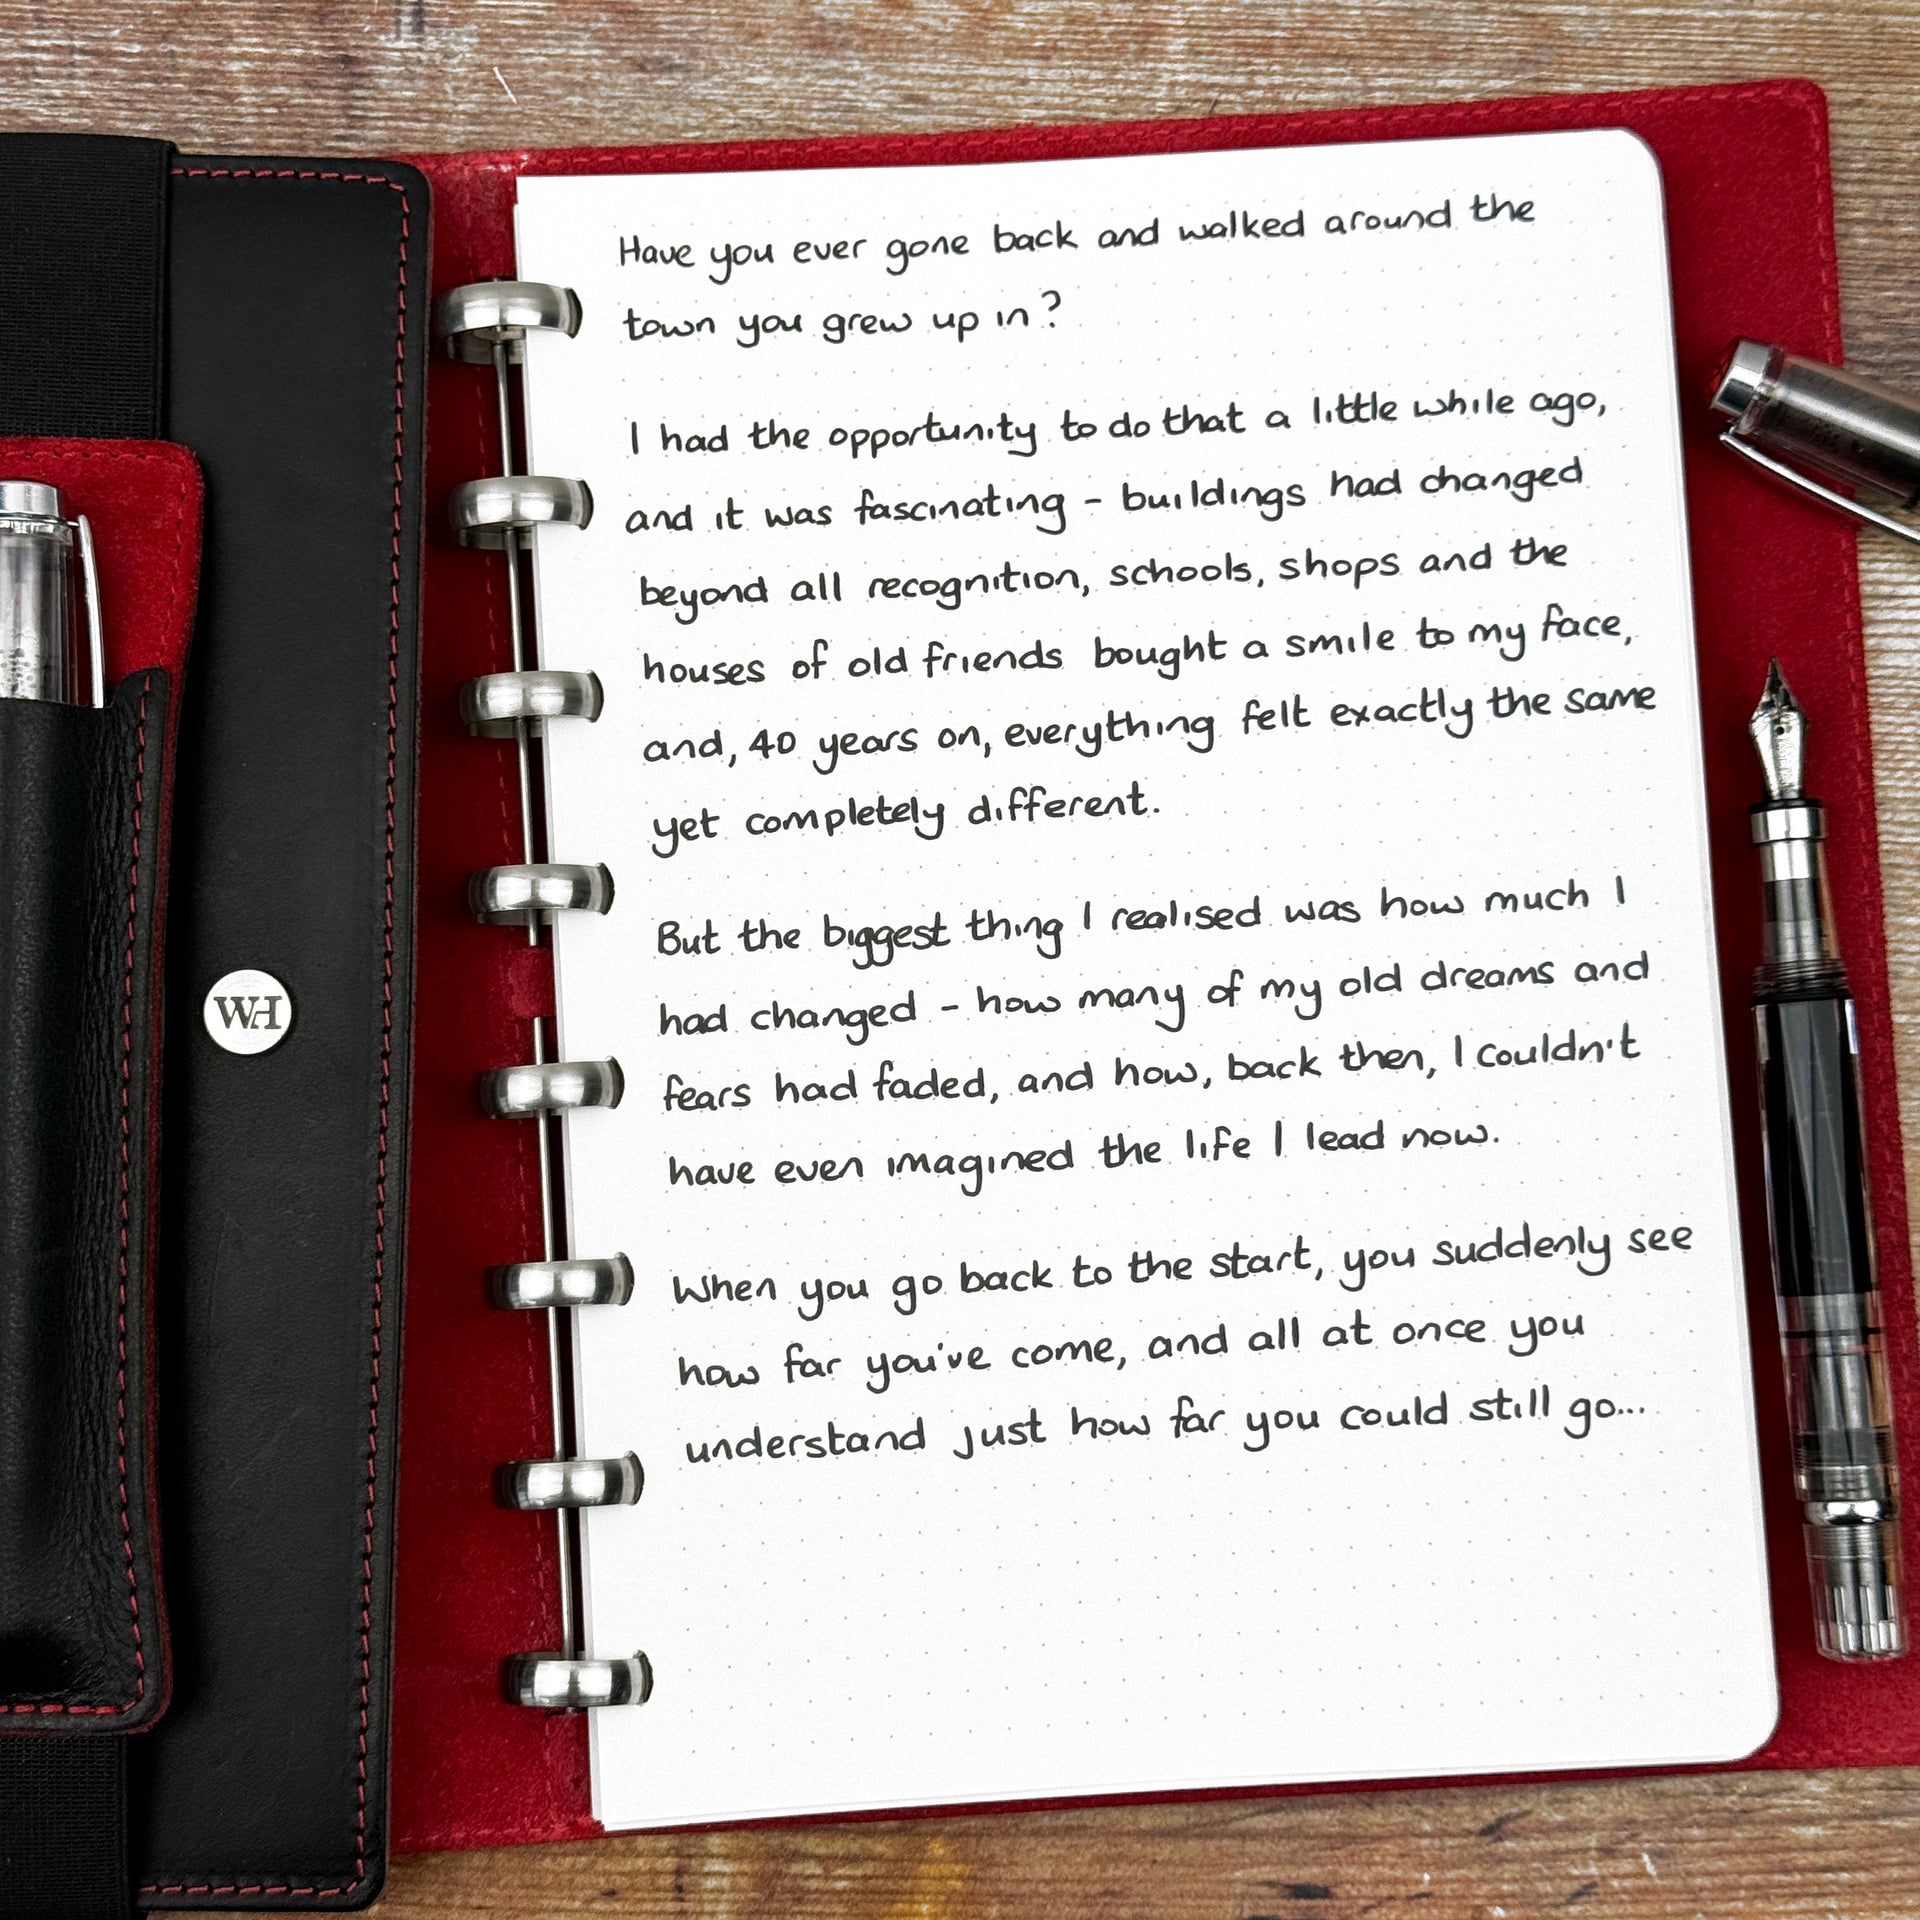 Have you ever gone back and walked around the
town you grew up in?
I had the opportunity to do that a little while ago,
and it was fascinating - buildings had changed
beyond all recognition, schools, shops and the
houses of old friends bought a smile to my face,
and, 40 years on, everything felt exactly the same
yet completely different.
But the biggest thing I realised was how much I
had changed - how many of my old dreams and
fears had faded, and how, back then, I couldn't
have even imagined the life I lead now.
When you go back to the start, you suddenly see
how far you've come, and all at once you
understand just how far you could still go...
WH